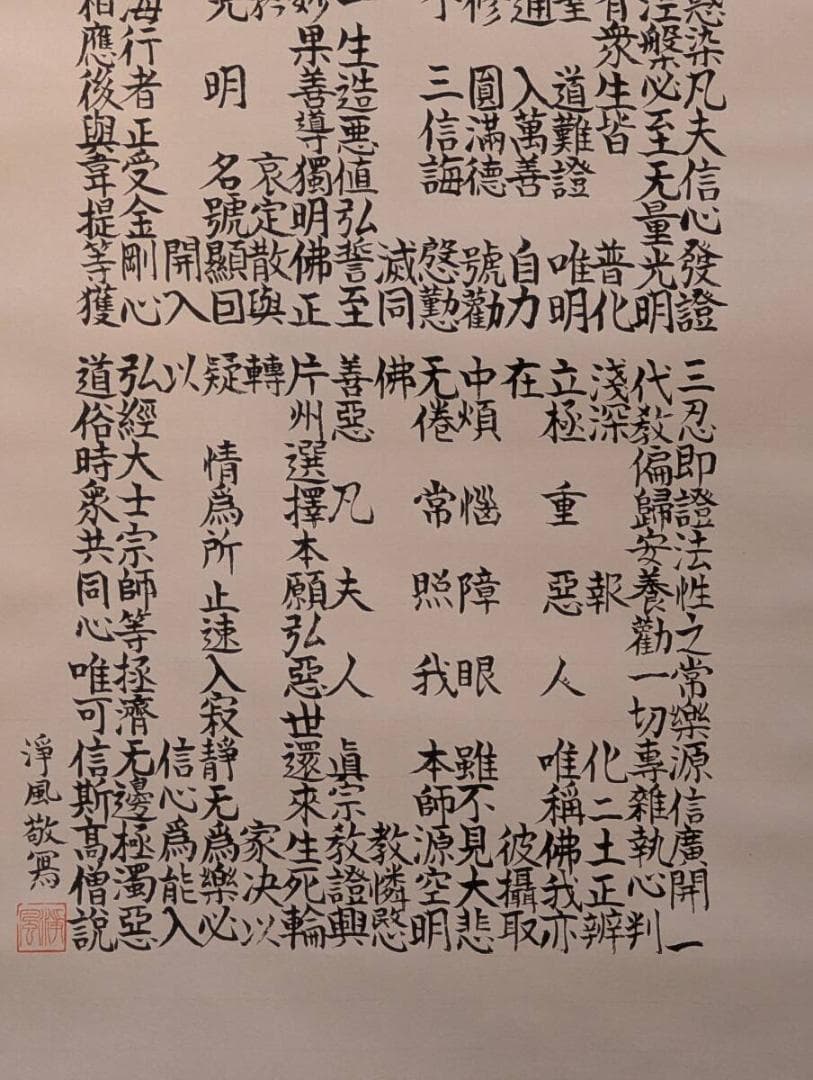 惑染凡夫信心發證
涅槃必至无量光明
有衆生皆普化
聖道難證唯明
通入萬善自力
修圓滿德號勸
不三信誨慇懃
滅同
一生造惡値弘誓至
妙果善導獨明佛正
矜哀定散與
光明名號顯囙
開入
海行者正受金剛心
相應後與韋提等獲
三忍即證法性之常樂源信廣開一
代教偏歸安養勸一切專雜執心判
淺深報化二土正辨
立極重惡人唯稱佛我亦
在彼攝取
中煩惱障眼雖不見大悲
无倦常照我本師源空明
佛教憐愍
善惡凡夫人眞宗教證興
片州選擇本願弘惡世還來生死輪
轉家決以
疑情爲所止速入寂靜无爲樂必
以信心爲能入
弘經大士宗師等拯濟无邊極濁惡
道俗時衆共同心唯可信斯髙僧說
淨風敬寫
淨風